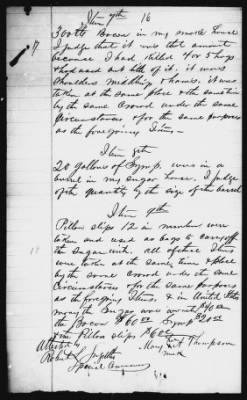 Item 7th 16
300 lbs Bacon in my smoke house
I judge that it was that amount
because I had killed for 5 hogs
& had used out half of it. it was
Shoulders middling & hams, it was
taken at the same place & the same time
by the same Crowd under the same
Circumstances & for the same purposes
as the foregoing Items —
Item 8th
20 gallons of Syrup. was in a
barrel in my sugar house. I judge
of the quantity by the size of the barrel
Item 9th
Pillow slips 12 in number were
taken and used as bags to carry off
the Sugar with. all of these Items
were taken at the same time & place
by the same crowd under the same
Circumstances & for the same purposes
as the foregoing Items, & in United States
money the Sugar was worth
the Bacon $60.00 Syrup
Pillow slips $6
Attested by Mary A Thompson
Robert mark
Special Commr